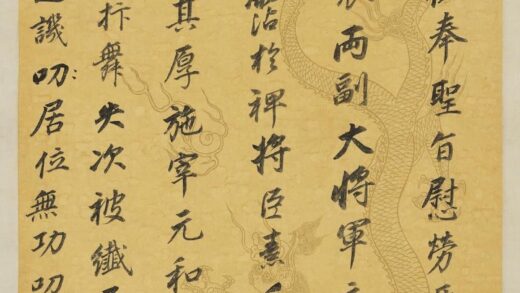 奉聖旨慰勞
両副大將軍
霑於裨將臣
其厚施宰元和
抃舞失次被纖
譏叨居位無功叨